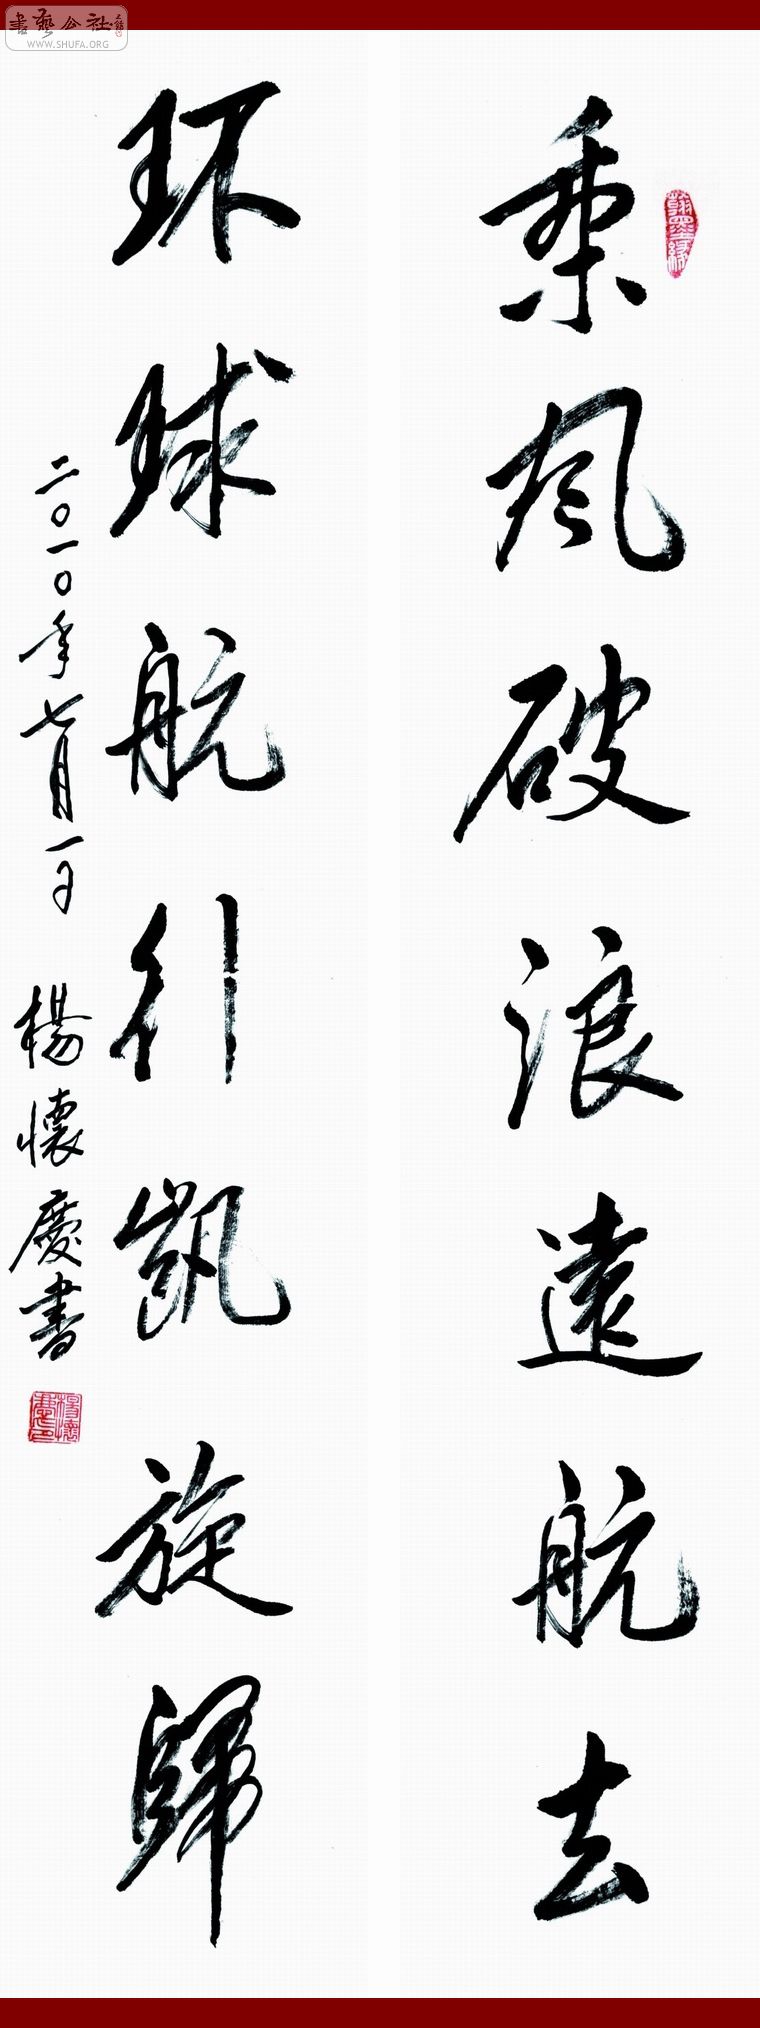 書藝公社
WWW.SHUFA.ORG
乘风破浪遠航去
环球航行凯旋歸
二〇一〇年七月一日
楊懷慶書
翰墨缘